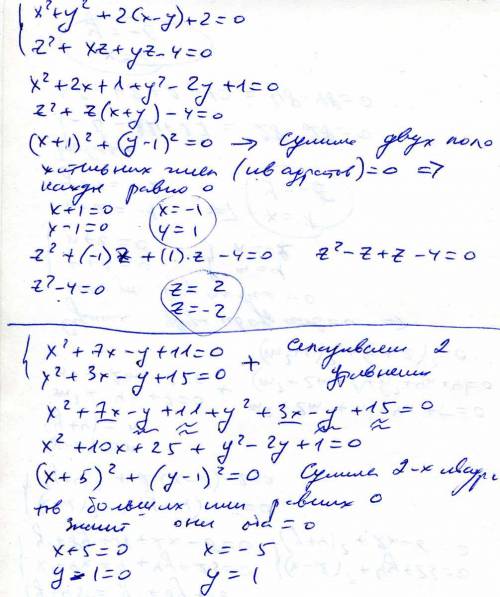 x²+y²+2(x-y)+2=0
z²+xz+yz-4=0
x²+2x+1+y²-2y+1=0
z²+z(x+y)-4=0
(x+1)²+(y-1)²=0 → Сумма двух поло
жительних чисел (квадратов)=0 ⇒
кажде равно 0
x+1=0 x=-1
y-1=0 y=1
z²+(-1)z+(1)·z-4=0 z²-z+z-4=0
z²-4=0 z=2
z=-2
x²+7x-y+11=0 + Складываем 2
x²+3x-y+15=0 уравнения
x²+7x-y+11+y²+3x-y+15=0
x²+10x+25+y²-2y+1=0
(x+5)²+(y-1)²=0 Сумма 2-х квадра
тов больших или равних 0
Значит они оба=0
x+5=0 x=-5
y-1=0 y=1